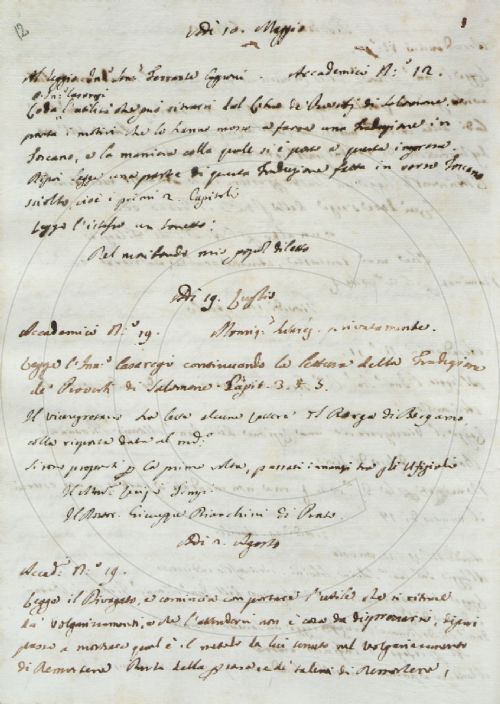 12
Adì 10. Maggio
Accademici N.º 12.
Loda l'utilità che può ritrarsi dal Libro de Proverbj di Salomone, e
porta i motivi che lo hanno mosso a farne una Traduzione in
Toscano, e la maniera colla quale si è posto a questa impresa.
Dipoi legge una parte di questa Traduzione fatta in verso Toscano
sciolto, cioè i primi 2. Capitoli
Legge l'istesso un sonetto:
Nel mio popol diletto
Adì 19. Luglio
Accademici N.º 19. privatamente.
Legge l'Inn.º Casaregi continuando la lettura della Traduzione
de Proverbi di Salomone Capit. 3. 4. 5.
Il Viceagricola ha letto alcune lettere del Borga di Bergamo
colla risposta data al med.º
Si sono proposti p la prima volta, passati innanzi tra gli Ufiziali
Il March. Luigi
Il Giuseppe Bianchini di Prato
Adì 2. Agosto
Accad.i N.º 19.
Legge il Rivogato, e comincia con portare l'utile che si ritrae
da' volgarizzamenti, e che l'attendervi non è cosa da disprezzarsi, dipoi
passa a mostrare qual'è il metodo da lui tenuto nel volgarizzamento
di Demostene